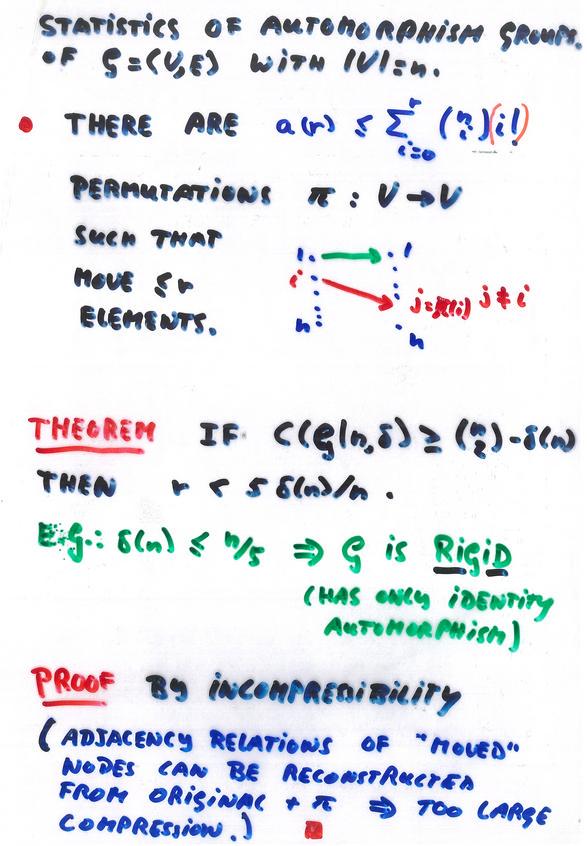 STATISTICS OF AUTOMORPHISM GROUPS
OF G=(V,E) WITH |V|=n.
• THERE ARE a(r) ≤ Σ_{i=0}^{r} (n i)(i!)
PERMUTATIONS π : V → V
SUCH THAT
MOVE ≤ r
ELEMENTS.
1 → 1
i j=π(i) j≠i
n n
THEOREM IF C(G|n,δ) ≥ (n 2) - δ(n)
THEN r < 5 δ(n)/n .
E.G.: δ(n) ≤ n/5 ⇒ G is RigiD
(HAS ONLY iDENTITY
AUTOMORPHISM)
PROOF BY INCOMPRESSIBILITY
(ADJACENCY RELATIONS OF "MOVED"
NODES CAN BE RECONSTRUCTED
FROM ORIGINAL + π ⇒ TOO LARGE
COMPRESSION.)